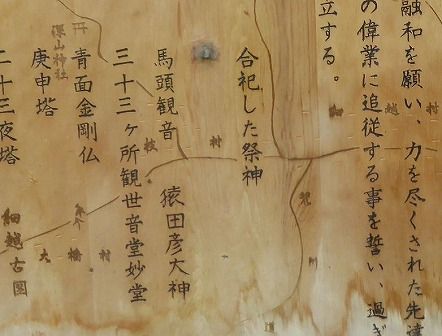 融和を願い、力を尽くされた先達
の偉業に追従する事を誓い、過ぎ
立する。
合祀した祭神
馬頭観音　猿田彦大神
三十三ヶ所観世音堂妙堂
青面金剛仏
庚申塔
二十三夜塔
深山神社
細越村
枝村
大橋村
細越古図